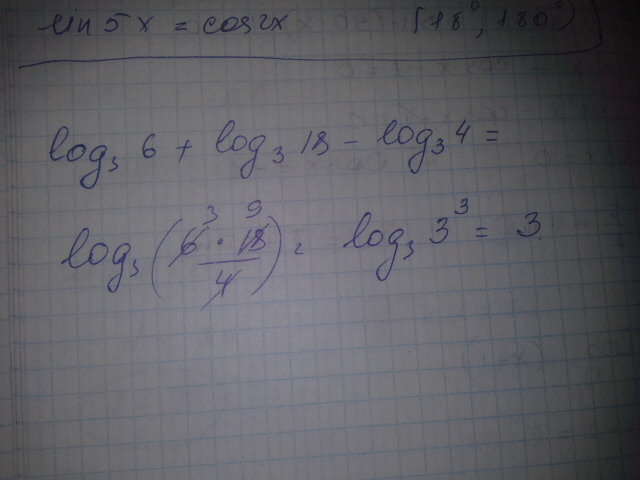 sin 5x = cos 2x [18°, 180°)
log₃ 6 + log₃ 18 - log₃ 4 =
log₃ (6 · 18 / 4) = log₃ 3³ = 3
3 9